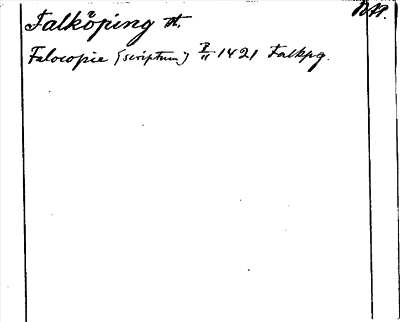 Falköping st.
Falocopie (scriptum) 8/11 1421 Falkpg.